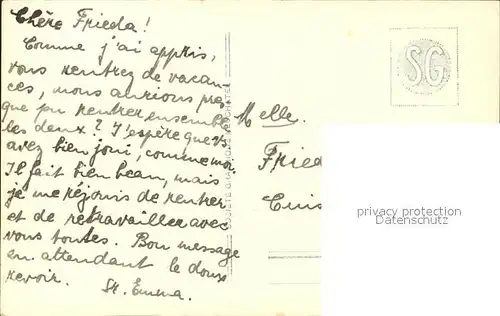 Chère Frieda!
Comme j'ai appris,
vous rentrez de vacan-
ces, nous aurions pres
que pu rentrer ensemble
les deux? J'espère que Vs
avez bien joui, comme moi
Il fait bien beau, mais
je me réjouis de rentrer
et de retravailler avec
vous toutes. Bon message
en attendant le doux
revoir.
Sr. Emma.
SG
Melle.
Fried
Cuis
privacy protection
VARIAGRAPHICS.COM